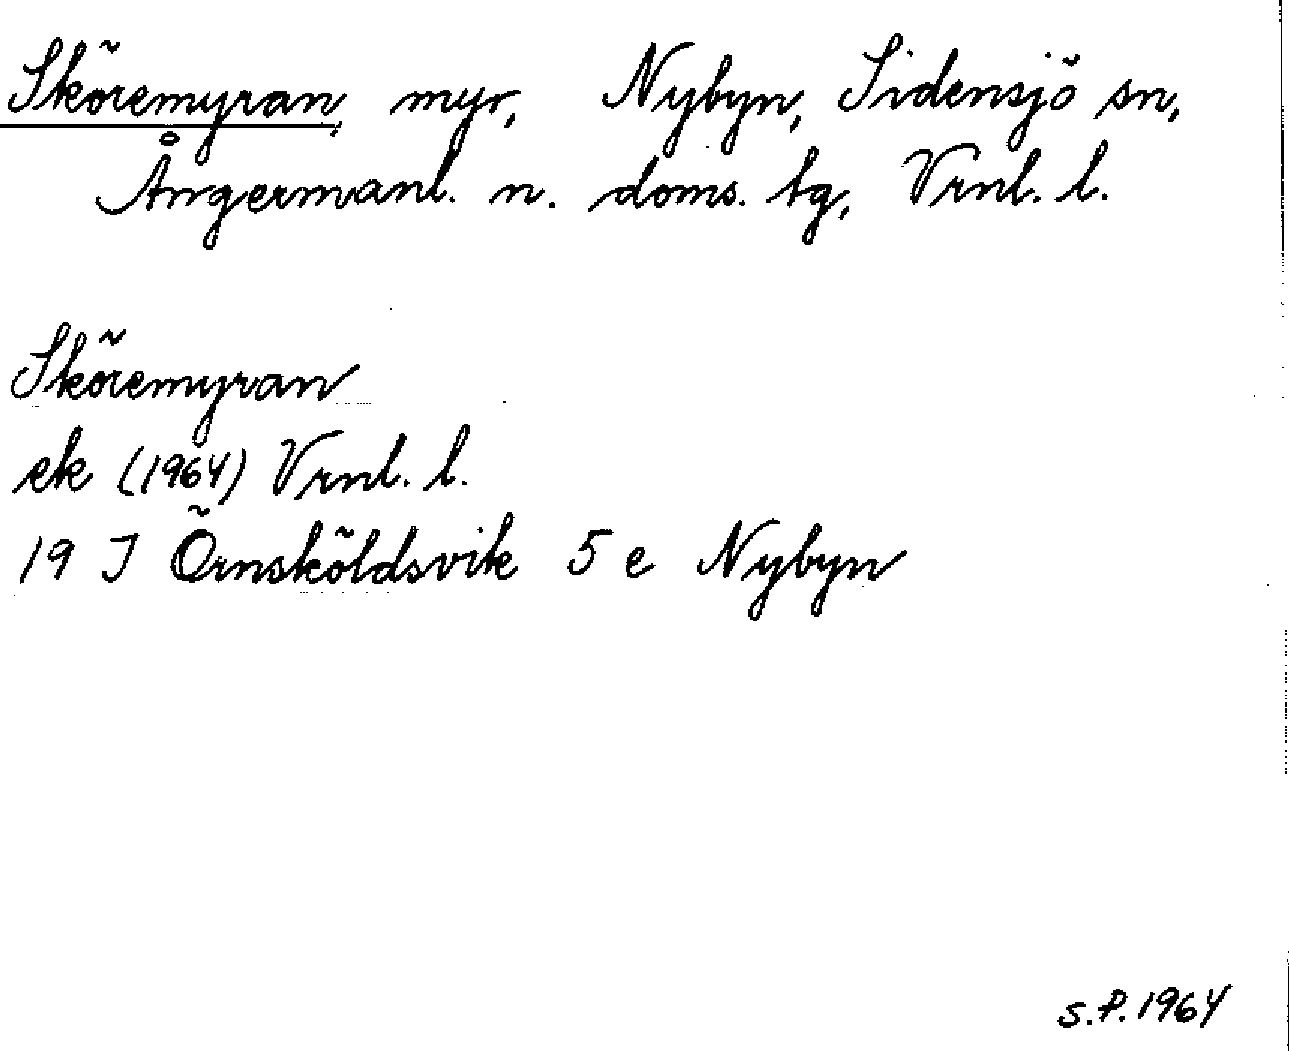 Sköremyran, myr, Nybyn, Sidensjö sn,
Ångermanl. n. doms. tg, Vrnl. l.
Sköremyran
ek (1964) Vrnl. l.
19 J Örnsköldsvik 5 e Nybyn
S.P. 1964